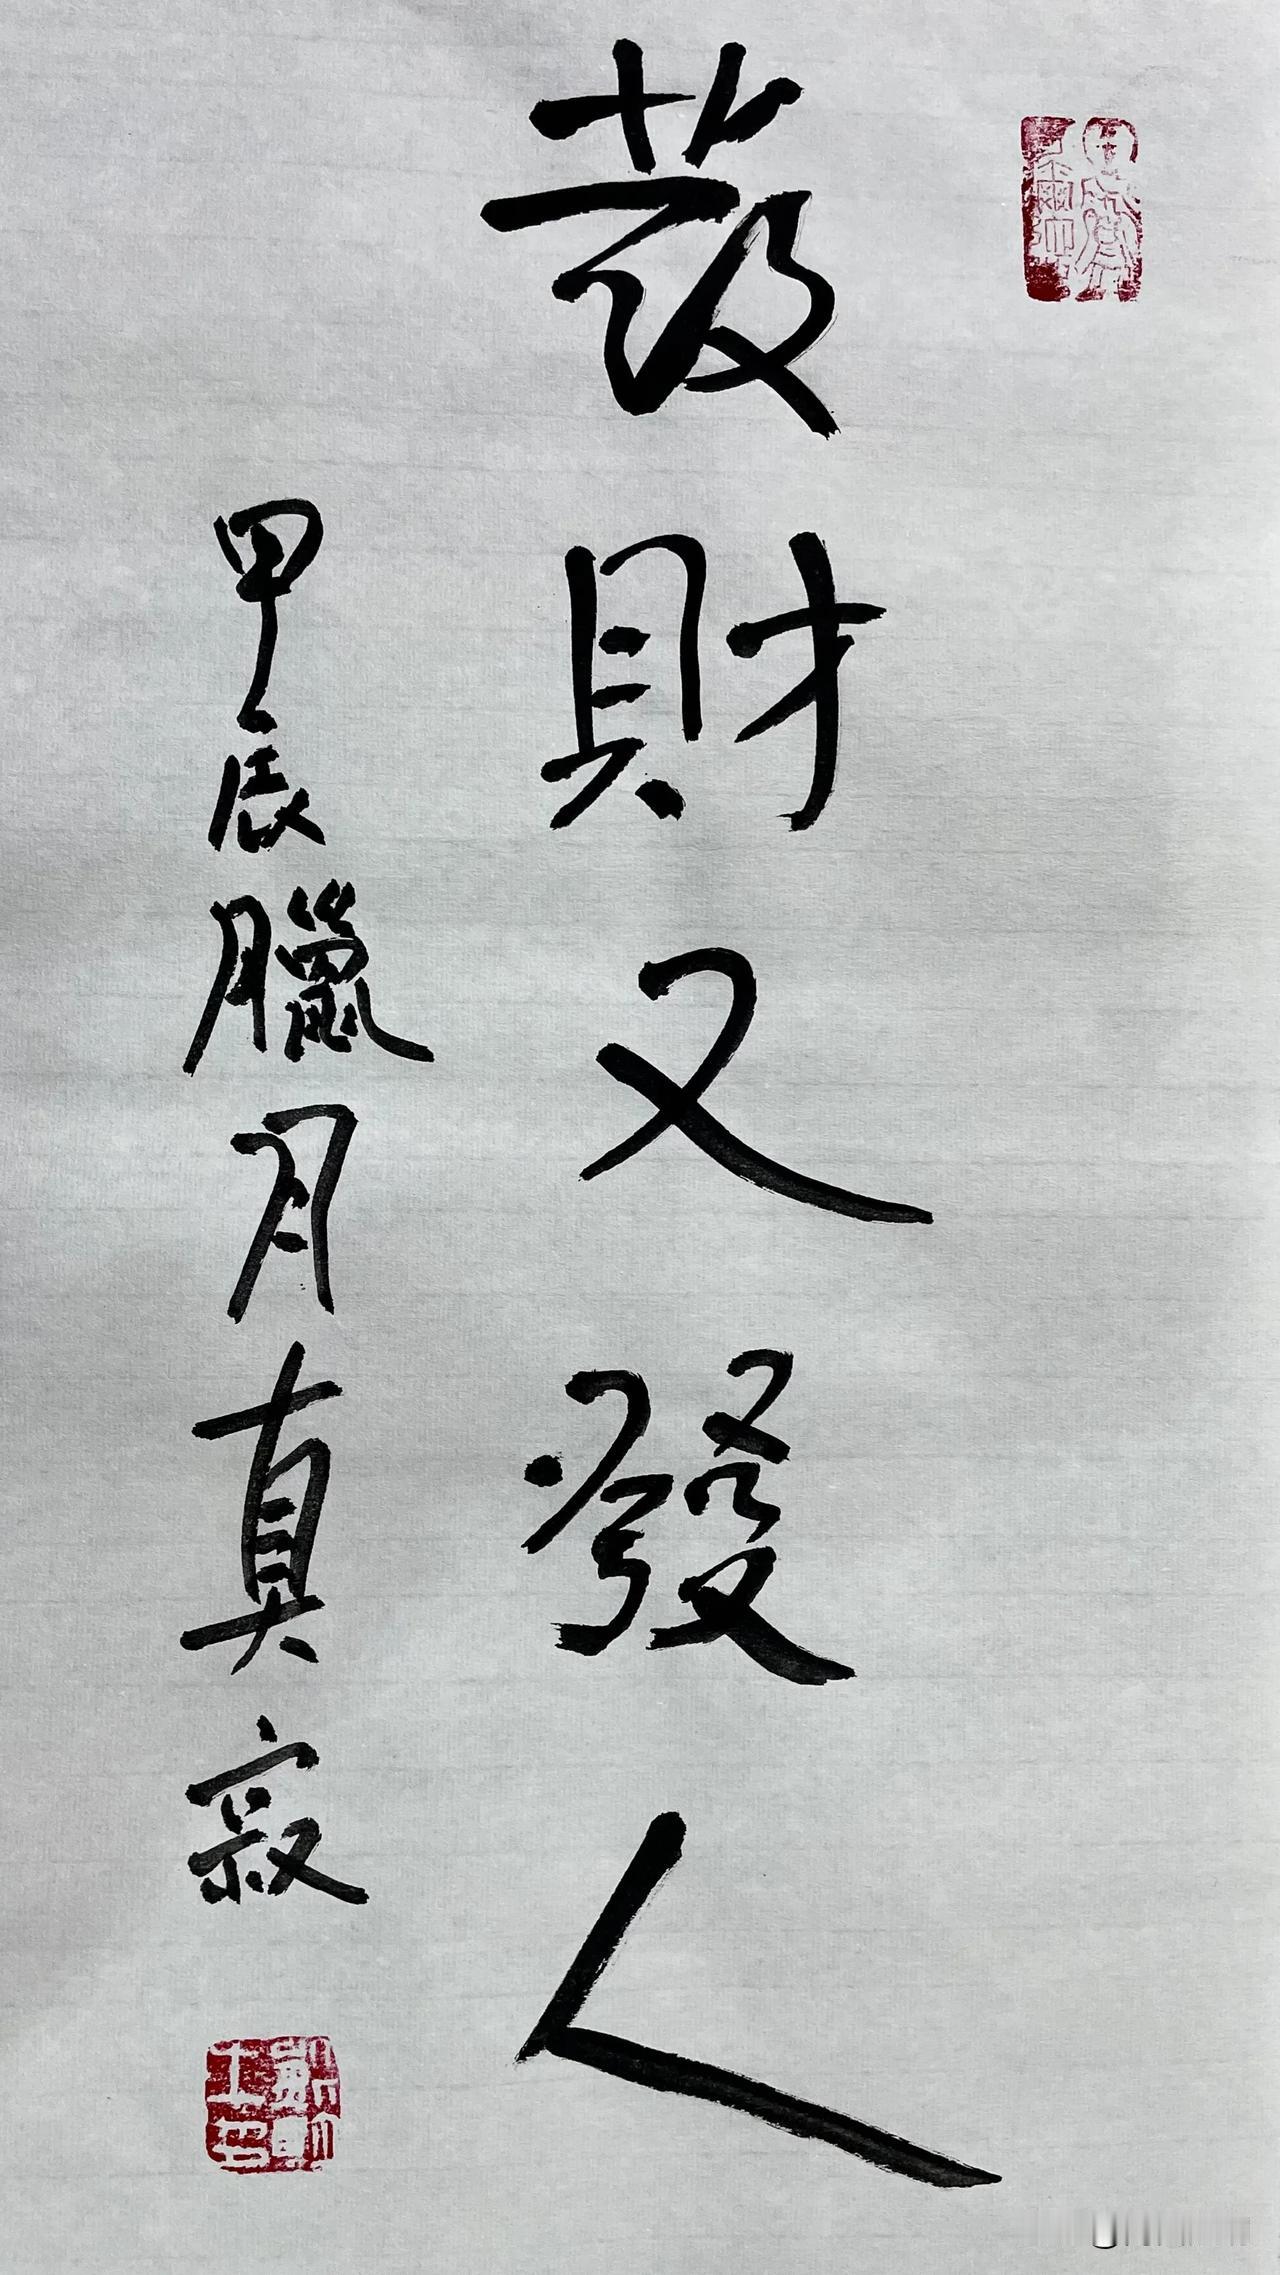 發財又發人
甲辰臘月真寂